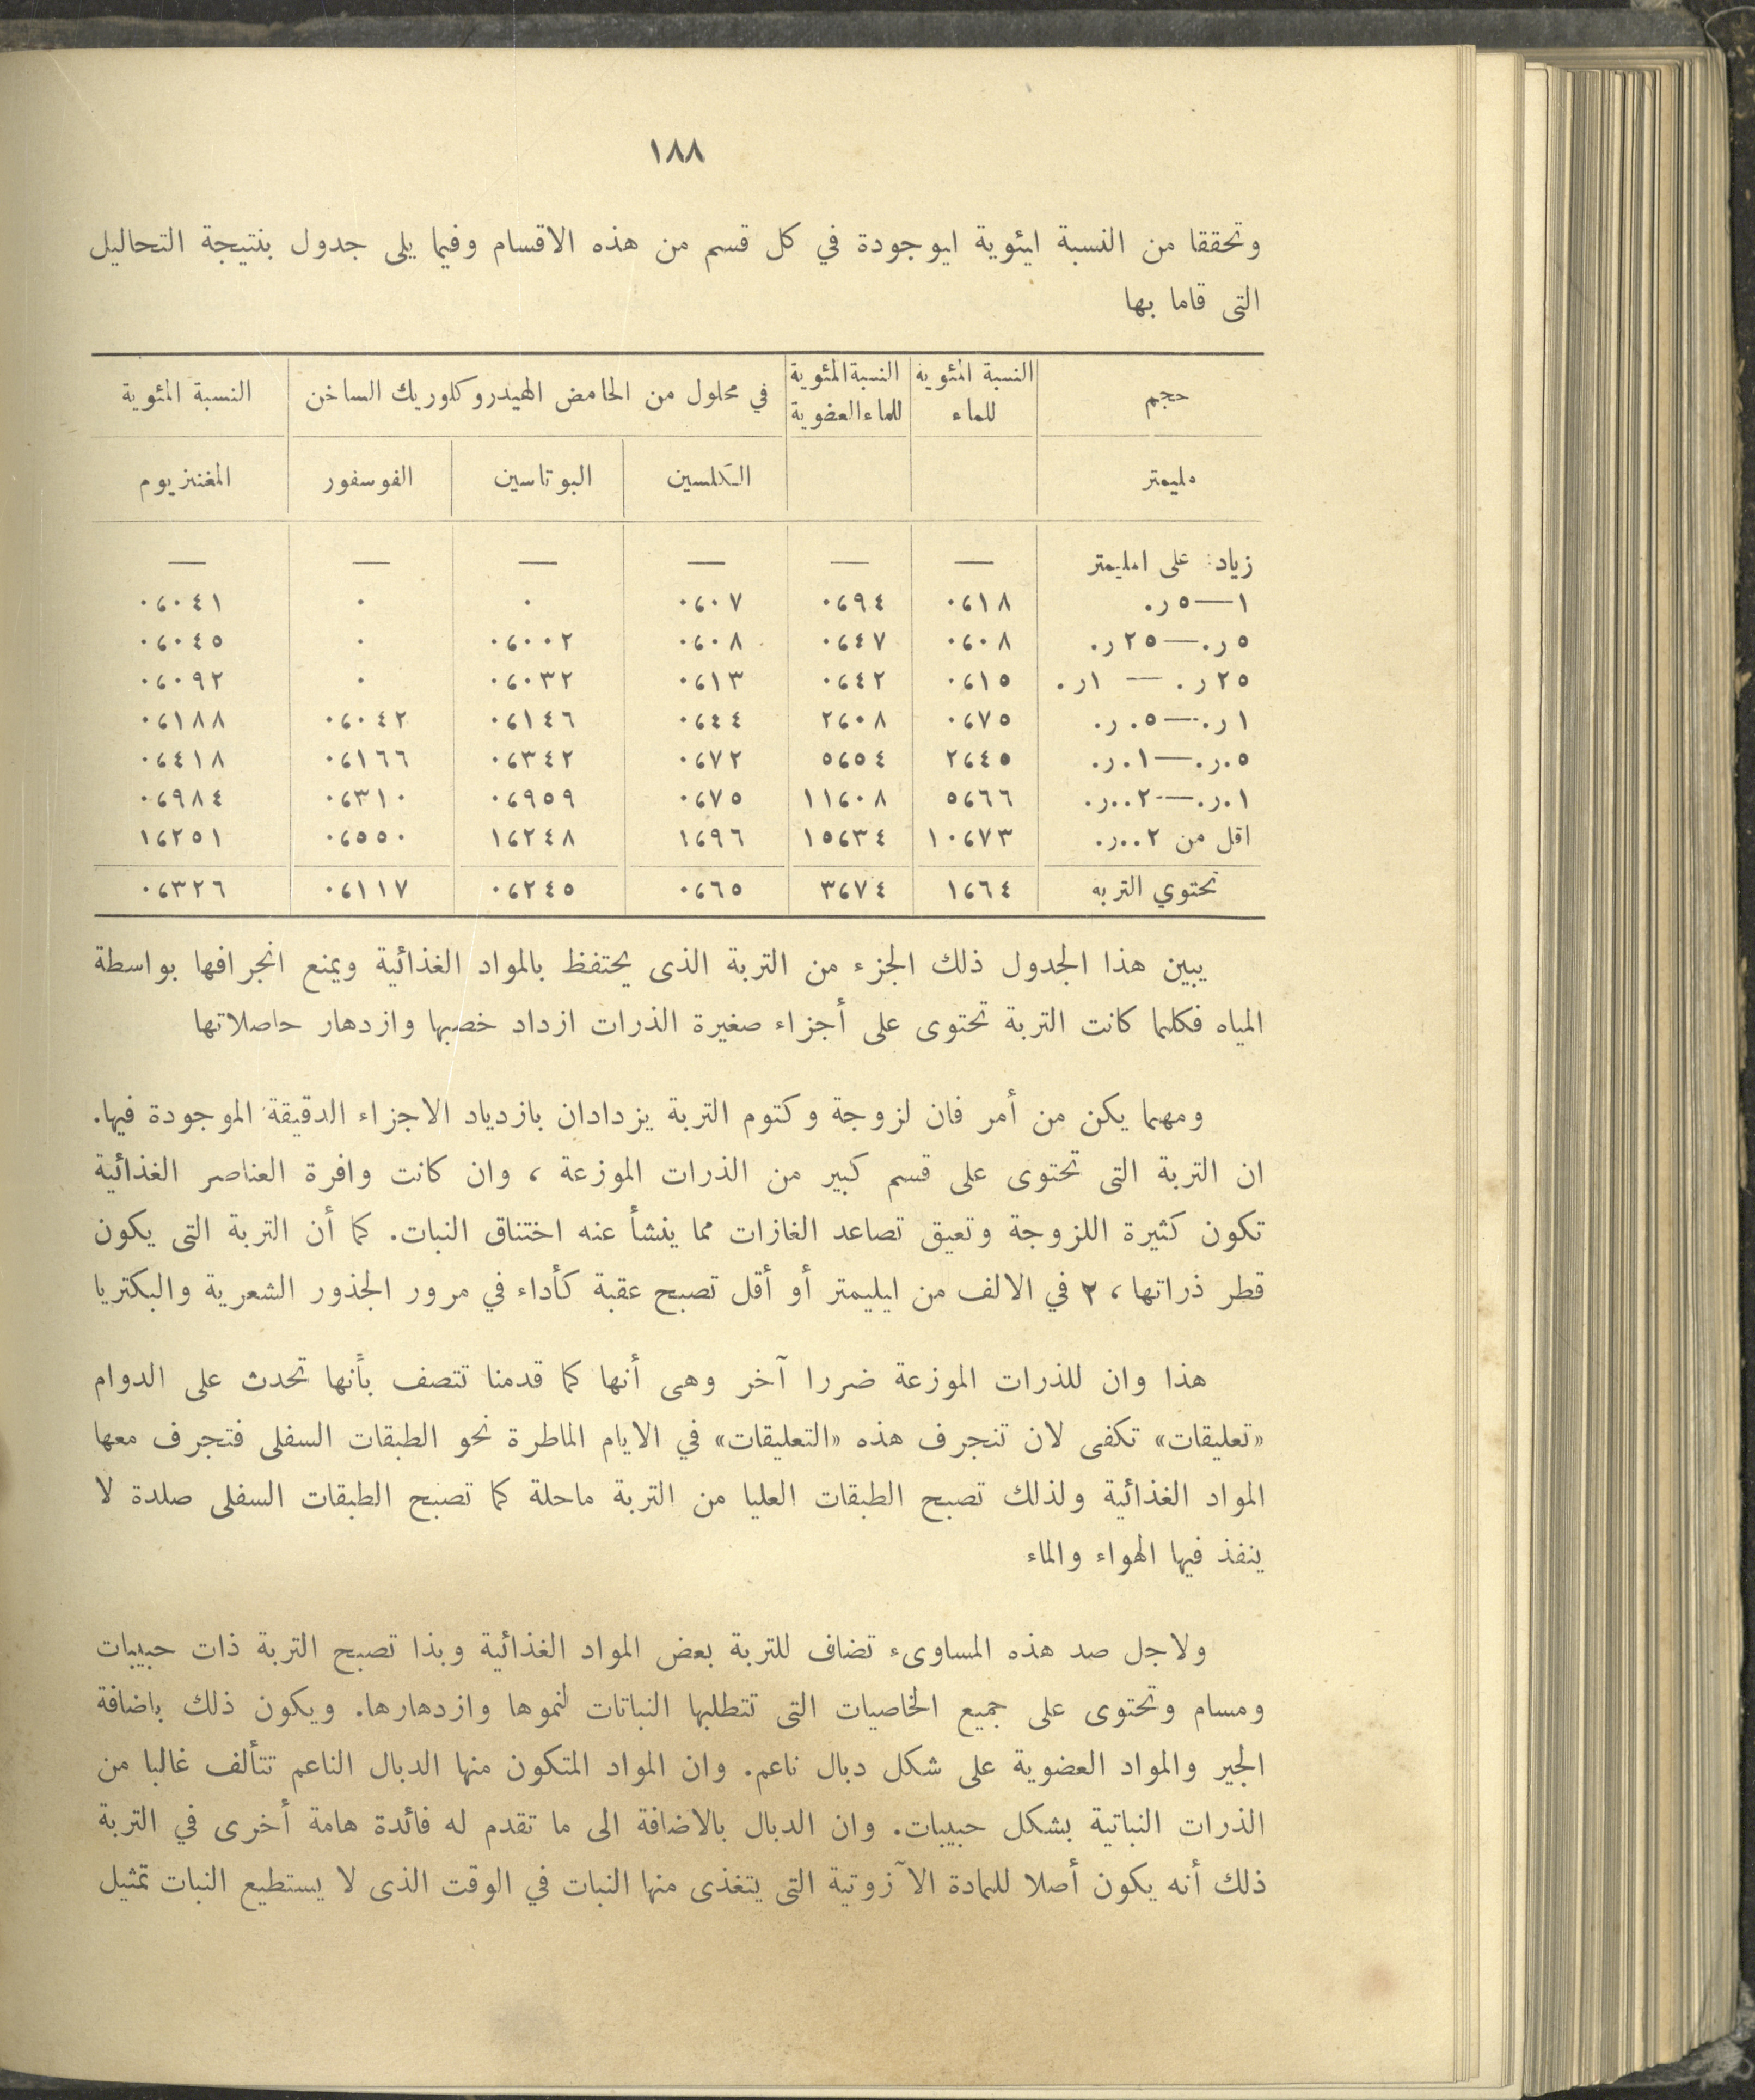 ١٨٨
وتحققا من النسبة ايئوية ايوجودة في كل قسم من هذه الاقسام وفيما يلى جدول بنتيجة التحاليل
التى قاما بها
حجم | النسبة المئوية للماء | النسبة المئوية للماء العضوية | في محلول من الحامض الهيدروكلوريك الساخن | النسبة المئوية
مليمتر | الكلسين | البوتاسين | الفوسفور | المغنزيوم
زياد: على امليمتر | — | — | — | — | — | —
١—٥ر٠ | ٠،١٨ | ٠،٩٤ | ٠،٠٧ | ٠ | ٠ | ٠،٠٤١
٥ر٠—٢٥ر٠ | ٠،٠٨ | ٠،٤٧ | ٠،٠٨ | ٠،٠٠٢ | ٠ | ٠،٠٤٥
٢٥ر٠ — ١ر٠ | ٠،١٥ | ٠،٤٢ | ٠،١٣ | ٠،٠٣٢ | ٠ | ٠،٠٩٢
١ر٠—٠٥ر٠ | ٠،٧٥ | ٢،٠٨ | ٠،٤٤ | ٠،١٤٦ | ٠،٠٤٢ | ٠،١٨٨
٠٥ر٠—٠١ر٠ | ٢،٤٥ | ٥،٥٤ | ٠،٧٢ | ٠،٣٤٢ | ٠،١٦٦ | ٠،٤١٨
٠١ر٠—٠٠٢ر٠ | ٥،٦٦ | ١١،٠٨ | ٠،٧٥ | ٠،٩٥٩ | ٠،٣١٠ | ٠،٩٨٤
اقل من ٠٠٢ر٠ | ١٠،٧٣ | ١٥،٣٤ | ١،٩٦ | ١،٢٤٨ | ٠،٥٥٠ | ١،٢٥١
تحتوي التربه | ١،٦٤ | ٣،٧٤ | ٠،٦٥ | ٠،٢٤٥ | ٠،١١٧ | ٠،٣٢٦
يبين هذا الجدول ذلك الجزء من التربة الذى يحتفظ بالمواد الغذائية ويمنع انجرافها بواسطة
المياه فكلما كانت التربة تحتوى على أجزاء صغيرة الذرات ازداد خصبها وازدهار حاصلاتها
ومهما يكن من أمر فان لزوجة وكتوم التربة يزدادان بازدياد الاجزاء الدقيقة الموجودة فيها.
ان التربة التى تحتوى على قسم كبير من الذرات الموزعة ، وان كانت وافرة العناصر الغذائية
تكون كثيرة اللزوجة وتعيق تصاعد الغازات مما ينشأ عنه اختناق النبات. كما أن التربة التى يكون
قطر ذراتها ، ٢ في الالف من ايليمتر أو أقل تصبح عقبة كأداء في مرور الجذور الشعرية والبكتريا
هذا وان للذرات الموزعة ضررا آخر وهى أنها كما قدمنا تتصف بأنها تحدث على الدوام
«تعليقات» تكفى لان تنجرف هذه «التعليقات» في الايام الماطرة نحو الطبقات السفلى فتجرف معها
المواد الغذائية ولذلك تصبح الطبقات العليا من التربة ماحلة كما تصبح الطبقات السفلى صلدة لا
ينفذ فيها الهواء والماء
ولاجل صد هذه المساوىء تضاف للتربة بعض المواد الغذائية وبذا تصبح التربة ذات حبيبات
ومسام وتحتوى على جميع الخاصيات التى تتطلبها النباتات لنموها وازدهارها. ويكون ذلك باضافة
الجير والمواد العضوية على شكل دبال ناعم. وان المواد المتكون منها الدبال الناعم تتألف غالبا من
الذرات النباتية بشكل حبيبات. وان الدبال بالاضافة الى ما تقدم له فائدة هامة أخرى في التربة
ذلك أنه يكون أصلا للمادة الآزوتية التى يتغذى منها النبات في الوقت الذى لا يستطيع النبات تمثيل